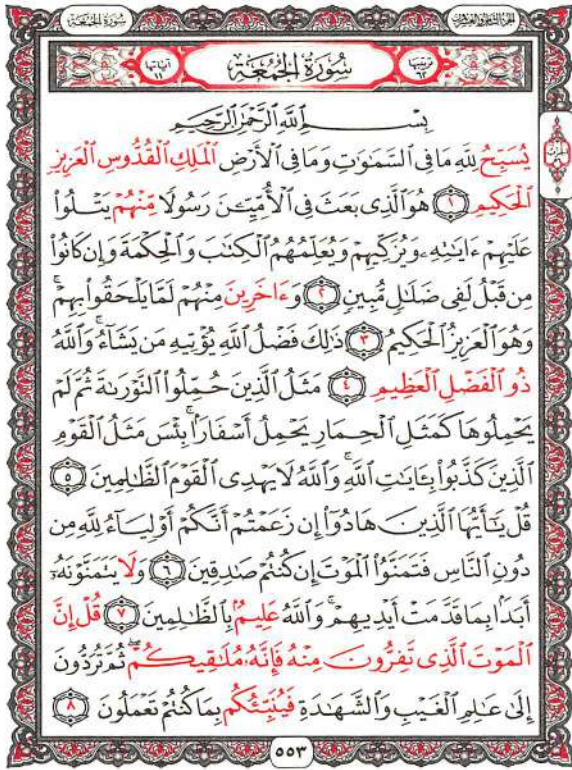 سورة الجمعة
الجزء الثامن والعشرون
ترتيبها ٦٢
سُورَةُ الجُمُعَة
آياتها ١١
بِسْمِ ٱللَّهِ ٱلرَّحْمَٰنِ ٱلرَّحِيمِ
يُسَبِّحُ لِلَّهِ مَا فِي ٱلسَّمَٰوَٰتِ وَمَا فِي ٱلْأَرْضِ ٱلْمَلِكِ ٱلْقُدُّوسِ ٱلْعَزِيزِ
ٱلْحَكِيمِ ١ هُوَ ٱلَّذِي بَعَثَ فِي ٱلْأُمِّيِّـۧنَ رَسُولًا مِّنْهُمْ يَتْلُوا۟
عَلَيْهِمْ ءَايَٰتِهِۦ وَيُزَكِّيهِمْ وَيُعَلِّمُهُمُ ٱلْكِتَٰبَ وَٱلْحِكْمَةَ وَإِن كَانُوا۟
مِن قَبْلُ لَفِي ضَلَٰلٍ مُّبِينٍ ٢ وَءَاخَرِينَ مِنْهُمْ لَمَّا يَلْحَقُوا۟ بِهِمْ ۚ
وَهُوَ ٱلْعَزِيزُ ٱلْحَكِيمُ ٣ ذَٰلِكَ فَضْلُ ٱللَّهِ يُؤْتِيهِ مَن يَشَآءُ ۚ وَٱللَّهُ
ذُو ٱلْفَضْلِ ٱلْعَظِيمِ ٤ مَثَلُ ٱلَّذِينَ حُمِّلُوا۟ ٱلتَّوْرَىٰةَ ثُمَّ لَمْ
يَحْمِلُوهَا كَمَثَلِ ٱلْحِمَارِ يَحْمِلُ أَسْفَارًۢا ۚ بِئْسَ مَثَلُ ٱلْقَوْمِ
ٱلَّذِينَ كَذَّبُوا۟ بِـَٔايَٰتِ ٱللَّهِ ۚ وَٱللَّهُ لَا يَهْدِي ٱلْقَوْمَ ٱلظَّٰلِمِينَ ٥
قُلْ يَٰٓأَيُّهَا ٱلَّذِينَ هَادُوٓا۟ إِن زَعَمْتُمْ أَنَّكُمْ أَوْلِيَآءُ لِلَّهِ مِن
دُونِ ٱلنَّاسِ فَتَمَنَّوُا۟ ٱلْمَوْتَ إِن كُنتُمْ صَٰدِقِينَ ٦ وَلَا يَتَمَنَّوْنَهُۥٓ
أَبَدًۢا بِمَا قَدَّمَتْ أَيْدِيهِمْ ۚ وَٱللَّهُ عَلِيمٌۢ بِٱلظَّٰلِمِينَ ٧ قُلْ إِنَّ
ٱلْمَوْتَ ٱلَّذِي تَفِرُّونَ مِنْهُ فَإِنَّهُۥ مُلَٰقِيكُمْ ۖ ثُمَّ تُرَدُّونَ
إِلَىٰ عَٰلِمِ ٱلْغَيْبِ وَٱلشَّهَٰدَةِ فَيُنَبِّئُكُم بِمَا كُنتُمْ تَعْمَلُونَ ٨
٥٥٣